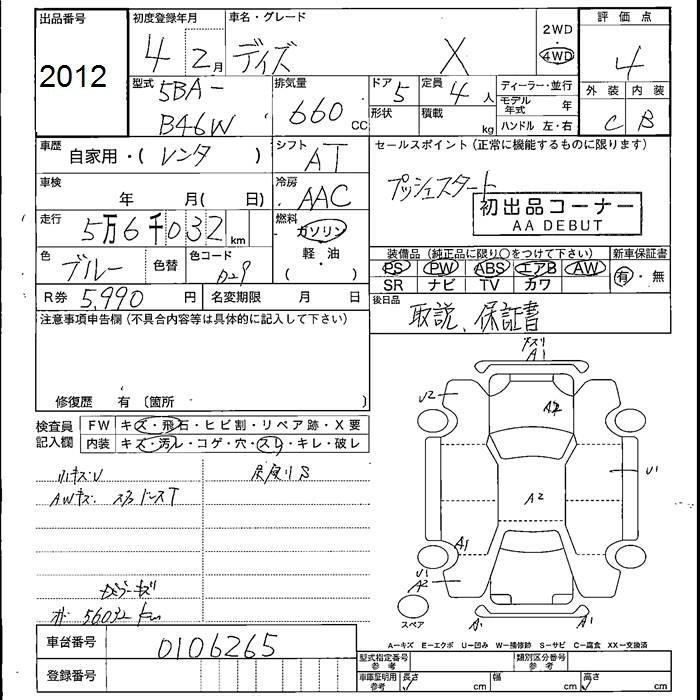 出品番号 初度登録年月 車名・グレード 2WD ・ 4WD 評価点
2012 4 2月 デイズ X 4
型式 5BA- B46W 排気量 660 CC ドア 5 形状 定員 4人 積載 kg ディーラー・並行 モデル年式 年 ハンドル 左・右 外装 内装
C B
車歴 自家用・( レンタ ) シフト AT セールスポイント(正常に機能するものに限ります)
車検 年 月( 日) 冷房 AAC プッシュスタート
初出品コーナー
AA DEBUT
走行 5万6千032 km 燃料 ガソリン ・ 軽・油 ・ ( )
色 ブルー 色替 色コード 装備品(純正品に限り○をつけて下さい) 新車保証書
PS PW ABS エアB AW 有・無
SR ナビ TV カワ
R券 5,990 円 名変期限 月 日 後日品 取説、保証書
注意事項申告欄(不具合内容等は具体的に記入して下さい)
修復歴 有 〔箇所 〕
検査員記入欄 FW キズ・飛石・ヒビ割・リペア跡・X要
内装 キズ・汚レ・コゲ・穴・スレ・キレ・破レ
AWキズ
56032 km
A1
U2
A2
U1
A2
A1
U1
A2
スペア
A1
A1
A-キズ E-エクボ U-凹み W-補修跡 S-サビ C-腐食 XX-交換済
車台番号 0106265
型式指定番号 参考 類別区分番号 参考
登録番号 車庫証明用 参考 長さ cm 幅 cm 高さ cm